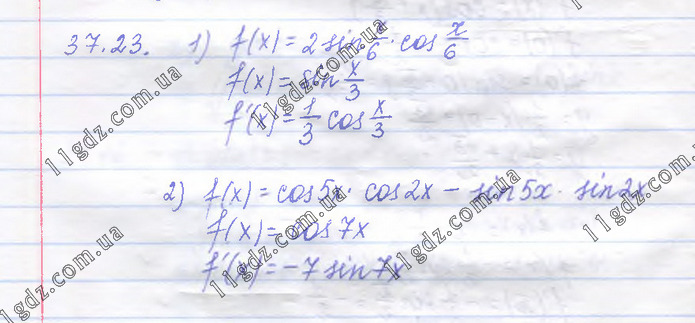 37.23. 1) f(x) = 2 sin x/6 · cos x/6
f(x) = sin x/3
f'(x) = 1/3 cos x/3
2) f(x) = cos 5x · cos 2x − sin 5x · sin 2x
f(x) = cos 7x
f'(x) = −7 sin 7x
11gdz.com.ua
11gdz.com.ua
11gdz.com.ua
11gdz.com.ua
11gdz.com.ua
11gdz.com.ua